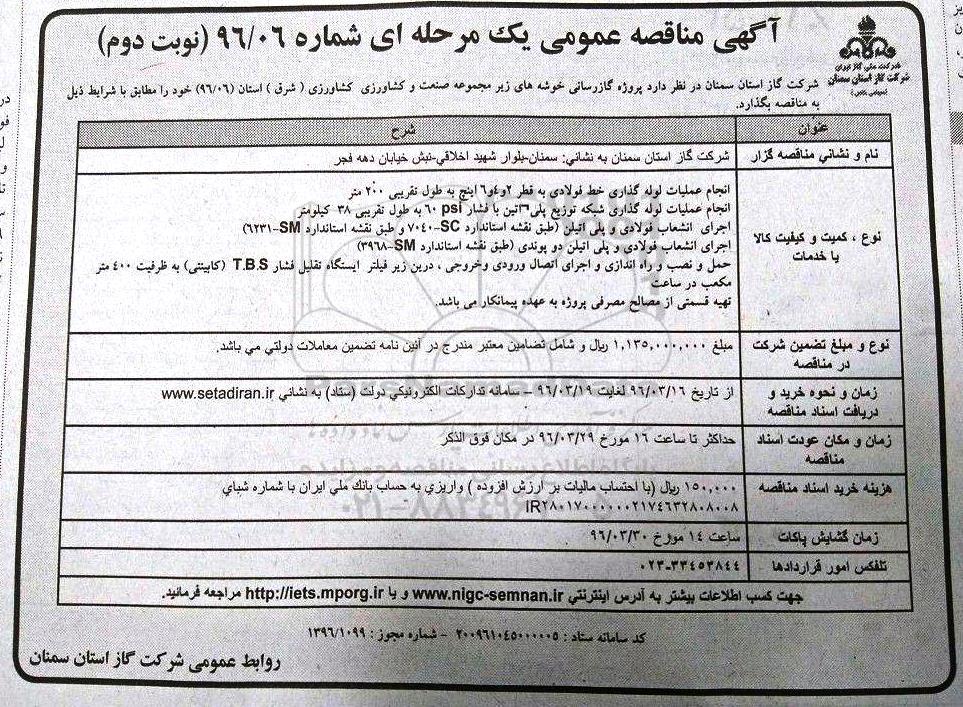 آگهی مناقصه عمومی یک مرحله ای شماره ۹۶/۰۶ (نوبت دوم)
شرکت ملی گاز ایران
شرکت گاز استان سمنان
(سهامی خاص)
شرکت گاز استان سمنان در نظر دارد پروژه گازرسانی خوشه های زیر مجموعه صنعت و کشاورزی کشاورزی ( شرق ) استان (۹۶/۰۶) خود را مطابق با شرایط ذیل
به مناقصه بگذارد.
عنوان
شرح
نام و نشاني مناقصه گزار
شرکت گاز استان سمنان به نشاني: سمنان-بلوار شهید اخلاقي-نبش خیابان دهه فجر
نوع ، کمیت و کیفیت کالا
یا خدمات
انجام عملیات لوله گذاری خط فولادی به قطر ۲و۴و۶ اینچ به طول تقریبی ۲۰۰ متر
انجام عملیات لوله گذاری شبکه توزیع پلی اتیلن با فشار ۶۰ psi به طول تقریبی ۳۸ کیلومتر
اجرای انشعاب فولادی و پلی اتیلن (طبق نقشه استاندارد SC-۷۰۴۰ و طبق نقشه استاندارد SM-۶۲۳۱)
اجرای انشعاب فولادی و پلی اتیلن دو پوندی (طبق نقشه استاندارد SM-۳۹۶۸)
حمل و نصب و راه اندازی و اجرای اتصال ورودی وخروجی ، درین زیر فیلتر ایستگاه تقلیل فشار T.B.S (کابینتی) به ظرفیت ۴۰۰ متر
مکعب در ساعت
تهیه قسمتی از مصالح مصرفی پروژه به عهده پیمانکار می باشد.
نوع و مبلغ تضمین شرکت
در مناقصه
مبلغ ۱,۱۳۵,۰۰۰,۰۰۰ ریال و شامل تضامین معتبر مندرج در آئین نامه تضمین معاملات دولتي مي باشد.
زمان و نحوه خرید و
دریافت اسناد مناقصه
از تاریخ ۹۶/۰۳/۱۶ لغایت ۹۶/۰۳/۱۹ – سامانه تدارکات الکترونیکي دولت (ستاد) به نشاني www.setadiran.ir
زمان و مکان عودت اسناد
مناقصه
حداکثر تا ساعت ۱۶ مورخ ۹۶/۰۳/۲۹ در مکان فوق الذکر
هزینه خرید اسناد مناقصه
۱۵۰,۰۰۰ ریال (با احتساب مالیات بر ارزش افزوده ) واریزي به حساب بانک ملي ایران با شماره شباي
IR۲۸۰۱۷۰۰۰۰۰۰۰۲۱۷۴۶۳۲۸۰۸۰۰۸
زمان گشایش پاکات
ساعت ۱۴ مورخ ۹۶/۰۳/۳۰
تلفکس امور قراردادها
۰۲۳-۳۳۴۵۳۸۴۴
جهت کسب اطلاعات بیشتر به آدرس اینترنتي www.nigc-semnan.ir و یا http://iets.mporg.ir مراجعه فرمائید.
کد سامانه ستاد : ۲۰۰۹۶۱۰۴۵۰۰۰۰۰۵ - شماره مجوز : ۱۳۹۶/۱۰۹۹
روابط عمومی شرکت گاز استان سمنان